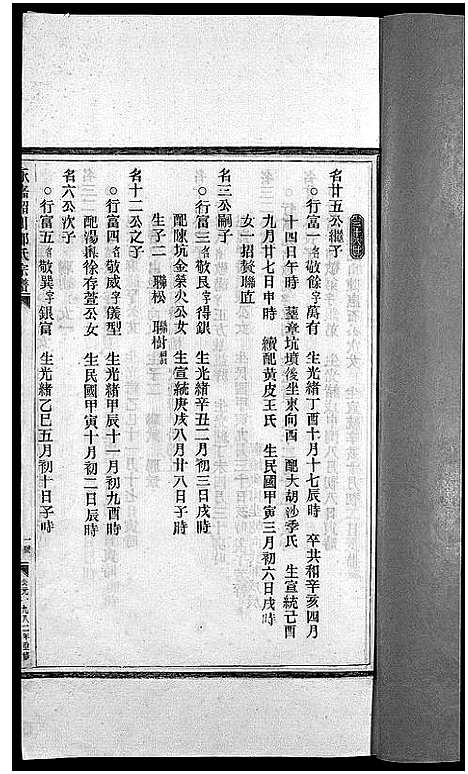 名廿五公繼子
○行富一名敬餘字萬有 生光緒丁酉十月十七辰時 卒共和辛亥四月
十四日午時 塟章坑墳後坐東向酉 配大胡沙季氏 生宣統己酉
九月廿七日申時 續配黃皮王氏 生民國甲寅三月初六日戌時
女一招贅聯直
名三公嗣子
○行富三名敬艮字得銀 生光緒辛丑二月初三日戌時
配陳坑金榮尖公女 生宣統庚戌八月廿八日子時
生子二 聯松 聯樹
名十二公之子
○行富四名敬威字儀型 生光緒甲辰十一月初九酉時
配湯徐存萱公女 生民國甲寅十月初二日辰時
名六公次子
○行富五名敬巽字銀富 生光緒乙巳五月初十日子時
氏宗譜